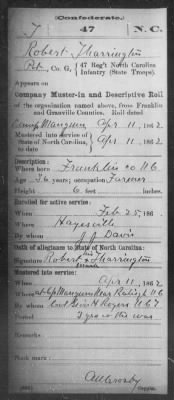 (Confederate.)
T 47 N.C.
Robert Tharrington
Pvt, Co. G, 47 Reg't North Carolina
Infantry (State Troops).
Appears on
Company Muster-in and Descriptive Roll
of the organization named above, from Franklin
and Granville Counties. Roll dated
Camp Mangum Apr 11, 1862
Mustered into service of
State of North Carolina,
to date Apr 11, 1862
Description:
Where born Franklin co N C
Age 36 years; occupation Farmer
Height 6 feet inches.
Enrolled for active service:
When Feb 25, 186
Where Hayesville
By whom J J Davis
Oath of allegiance to State of North Carolina:
Signature Robert his X mark Tharrington
Mustered into service:
When Apr 11, 1862
Where at Cp Mangum Near Raleigh N C
By whom
Period 3 yrs or the war
Remarks:
Mark more:
Copyist.